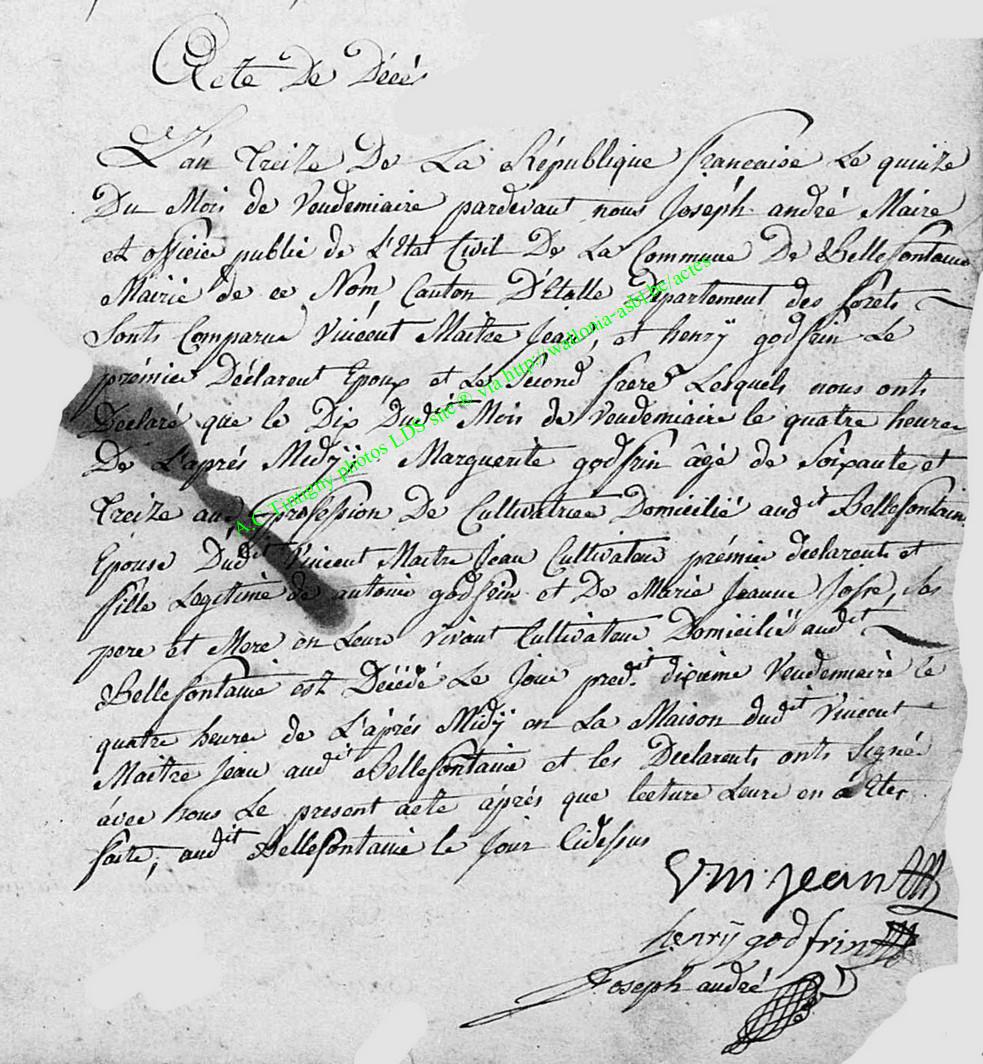 Acte De Décés
L'an Treize De La République française Le quinze
Du Mois de Vendemiaire pardevant nous Joseph andré Maire
et officier public de L'Etat Civil De La Commune De Bellefontaine
Mairie de ce Nom, Canton D'Etalle Département des forets
Sonts Comparu Vincent Maitre Jean, et henrÿ godfrin Le
prémier Déclarent Epoux et Le Second frere Lesquels nous onts
Declaré que le Dix Dudit Mois de Vendemiaire le quatre heure
De L'aprés Midÿ Marguerite godfrin agé de Soixante et
Treize ans profession De Cultivatrice Domicilié audit Bellefontaine
Epouse Dudit Vincent Maitre Jean Cultivateur prémier declarents et
fille Legitime de antoine godfrin et De Marie Jeanne Josse, Ses
pere et Mere en Leure Vivant Cultivateur Domiciliés audit
Bellefontaine est Décédé Le Jour predit dixieme Vendemiaire le
quatre heure de L'aprés Midÿ en La Maison dudit Vincent
Maitre Jean audit Bellefontaine et les Declarents onts Signé
avec nous Le present acte aprés que lecture Leure en a Eter
faite, audit Bellefontaine le Jour Cidessus
V·m·jean
henrÿ godfrin
Joseph andré
A.C Tintigny photos LDS-snc ® via http://wallonia-asbl.be/actes